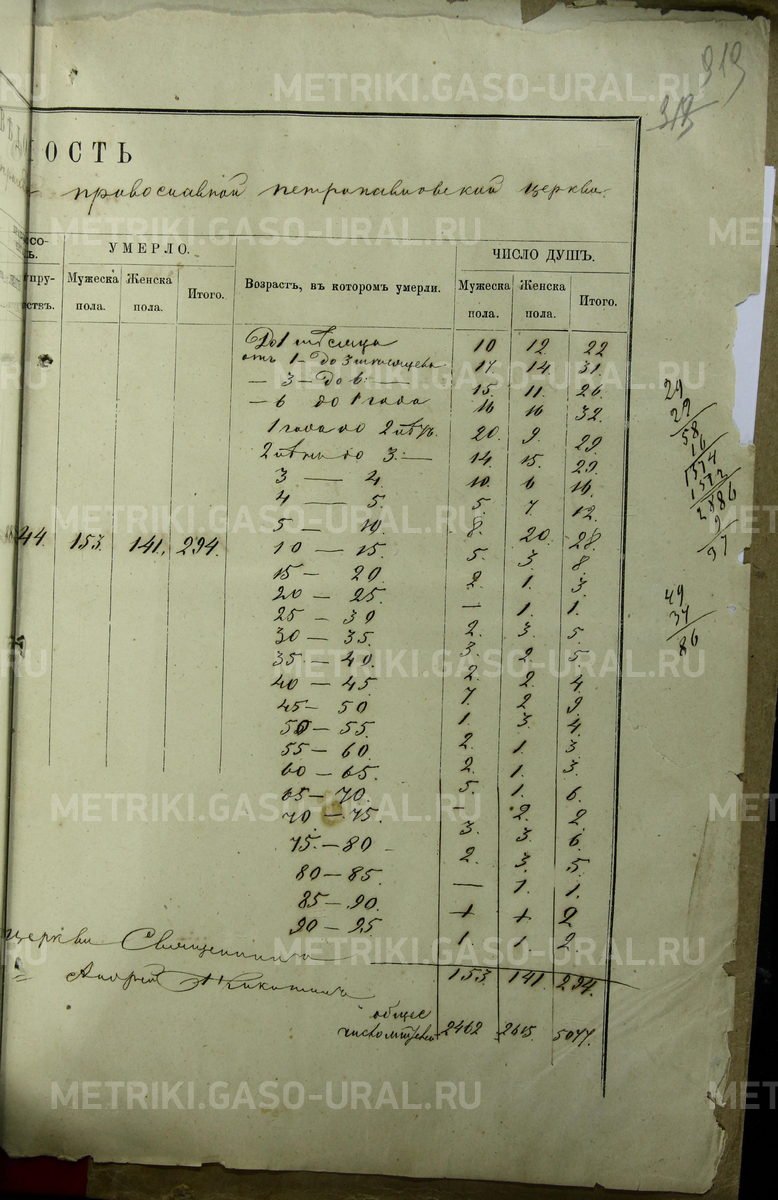 319
313
ОСТЬ
православной петропавловской церкви.
УМЕРЛО. ЧИСЛО ДУШЪ.
Мужеска пола. Женска пола. Итого. Возрастъ, въ которомъ умерли. Мужеска пола. Женска пола. Итого.
До 1 мѣсяца 10 12 22
отъ 1 – до 3 месяцевъ 17 14 31.
— 3 – до 6 — 15. 11. 26.
— 6 до 1 года 16 16 32.
1 года до 2 лѣтъ. 20. 9 29
2 лѣтъ до 3. — 14. 15. 29.
3 — 4. 10. 6 16.
4 — 5. 5. 7 12.
5 — 10. 8. 20. 28.
44. 153. 141. 294. 10 — 15. 5. 3. 8.
15 — 20 2. 1. 3.
20 — 25. — 1. 1.
25 — 30 2. 3. 5.
30 — 35. 3. 2 5.
35 — 40. 2. 2. 4
40 — 45 7. 2 9
45 – 50 1. 3. 4.
50 — 55. 2. 1. 3
55 — 60. 2. 1. 3.
60 — 65. 5. 1. 6.
65 — 70. — 2. 2.
70 — 75. 3. 3. 6.
75. — 80 2. 3. 5.
80 — 85. — 1. 1.
85 — 90. + + 2
90 — 95 1. 1 2.
церкви Священникъ
Андрей
153. 141 294.
общее
число 2462 2615. 5077.
29
29
58
16
1314
1572
2886
9
97
49
37
86
METRIKI.GASO-URAL.RU